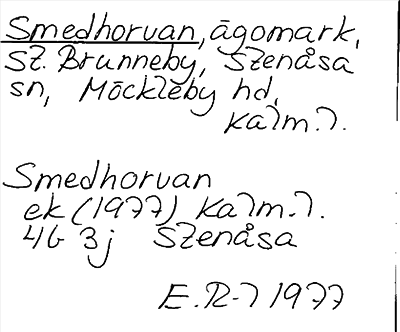 Smedhorvan, ägomark,
St. Brunneby, Stenåsa
sn, Möckleby hd,
Kalm. l.
Smedhorvan
ek (1977) Kalm. l.
4G 3j Stenåsa
E. R-l 1977